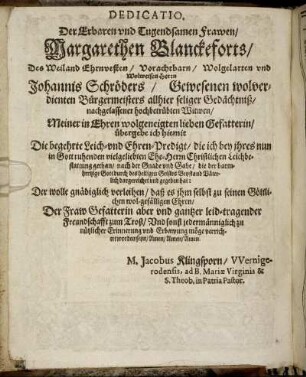 DEDICATIO.
Der Erbaren vnd Tugendsamen Frawen/
Margarethen Blanckeforts/
Des Weiland Ehrnvesten / Vorachtbarn / Wolgelarten vnd
Wolweisen Herrn
Johannis Schröders / Gewesenen wolver-
dienten Bürgermeisters allhier seliger Gedächtniß/
nachgelassener hochbetrübten Witwen/
Meiner in Ehren wolgeneigten lieben Gefatterin/
übergebe ich hiemit
Die begehrte Leich- vnd Ehren-Predigt/ die ich bey ihres nun
in Gott ruhenden vielgeliebten Ehe-Herrn Christlichen Leichbe-
stattung gethan/ nach der Gnade vnd Gabe/ die der barm-
hertzige Gott durch des heiligen Geistes Beystand Väter-
lich dargereichet vnd gegeben hat:
Der wolle gnädiglich verleihen/ daß es ihm selbst zu seinen Göttli-
chen wol-gefälligen Ehren/
Der Fraw Gefatterin aber vnd gantzer leid-tragender
Freundschafft zum Trost/ Vnd sonst jedermänniglich zu
nützlicher Erinnerung vnd Erbawung möge verrich-
tet worden seyn/ Amen/ Amen/ Amen.
M. Jacobus Klingsporn/ VVernige-
rodensis, ad B. Mariæ Virginis &
S. Theob. in Patria Pastor.